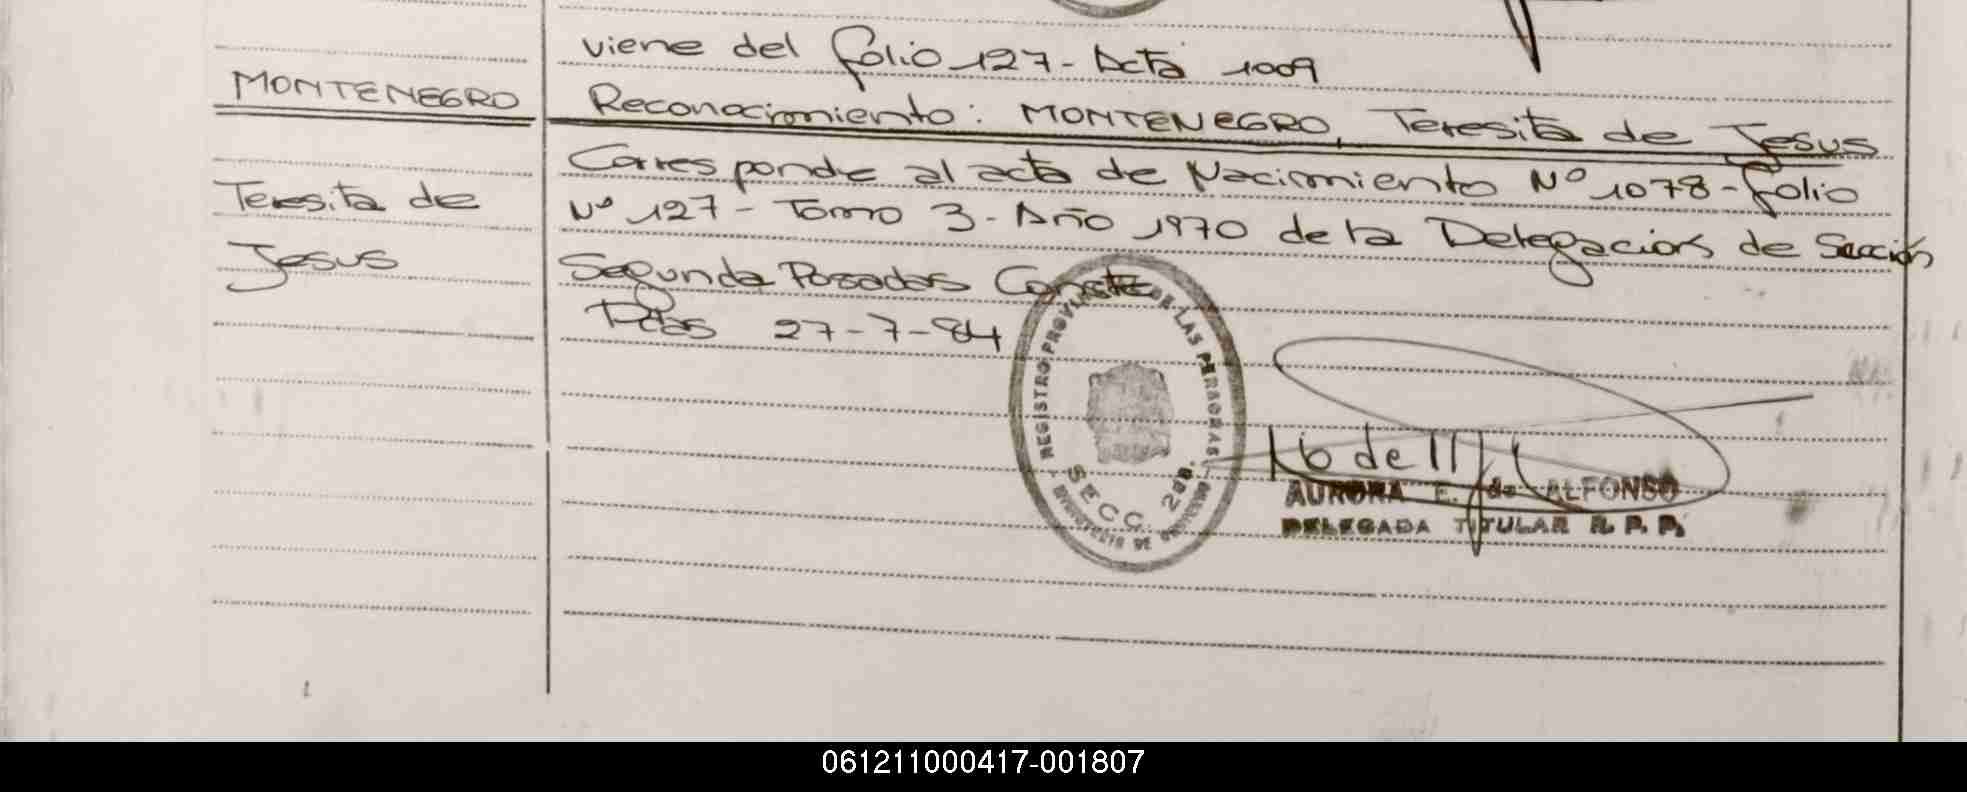 viene del folio 127 - Acta 1009
MONTENEGRO
Reconocimiento: MONTENEGRO, Teresita de Jesus
Corresponde al acta de Nacimiento Nº 1078 - folio
Teresita de
Nº 127 - Tomo 3 - Año 1970 de la Delegación de Sección
Jesus
Segunda Posadas Conste
Pdas 27-7-84
REGISTRO PROVINCIAL DE LAS PERSONAS
SECC. 2da.
MINISTERIO DE GOBIERNO
AURORA F. de ALFONSO
DELEGADA TITULAR R. P. P.
061211000417-001807